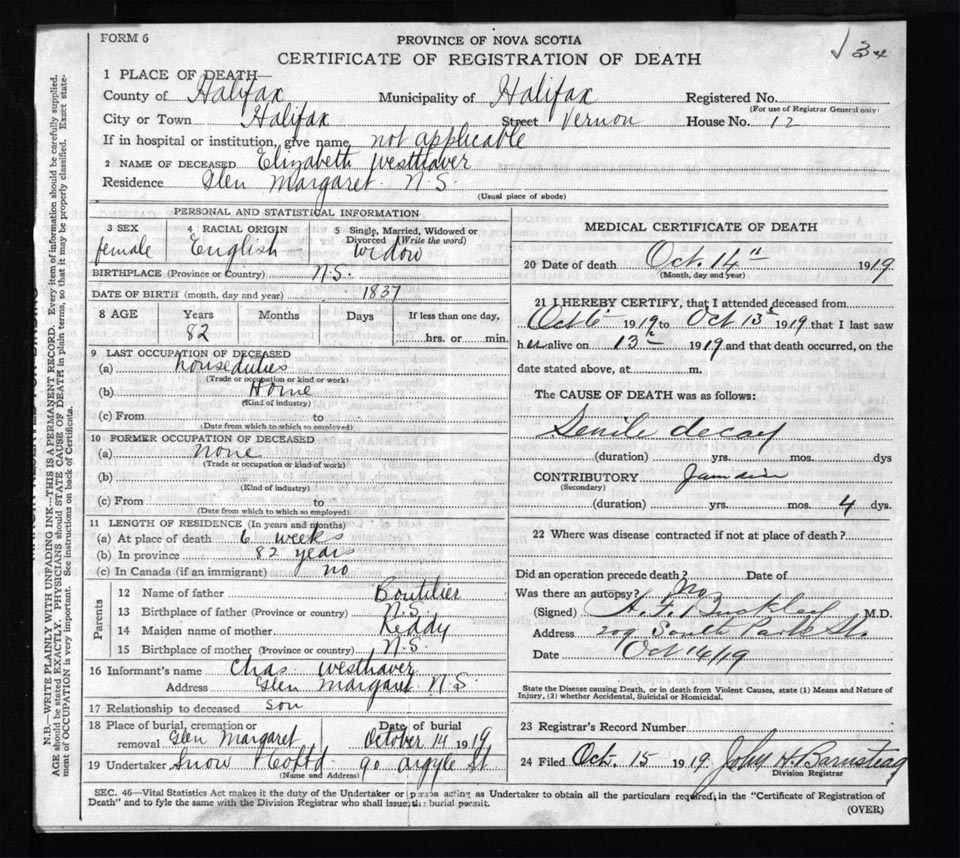 FORM 6
PROVINCE OF NOVA SCOTIA
CERTIFICATE OF REGISTRATION OF DEATH
1 PLACE OF DEATH—
County of Halifax Municipality of Halifax Registered No.
(For use of Registrar General only)
City or Town Halifax Street Vernon House No. 12
If in hospital or institution, give name not applicable
2 NAME OF DECEASED Elizabeth Westhaver
Residence Glen Margaret N.S.
(Usual place of abode)
PERSONAL AND STATISTICAL INFORMATION
3 SEX 4 RACIAL ORIGIN 5 Single, Married, Widowed or Divorced (Write the word)
female English widow
BIRTHPLACE (Province or Country) N.S.
DATE OF BIRTH (month, day and year) 1837
8 AGE Years Months Days If less than one day,
82 hrs. or min.
9 LAST OCCUPATION OF DECEASED
(a) house duties
(Trade or occupation or kind or work)
(b) Home
(Kind of industry)
(c) From to
(Date from which to which so employed)
10 FORMER OCCUPATION OF DECEASED
(a) none
(Trade or occupation or kind of work)
(b)
(Kind of industry)
(c) From to
(Date from which to which so employed)
11 LENGTH OF RESIDENCE (In years and months)
(a) At place of death 6 weeks
(b) In province 82 years
(c) In Canada (if an immigrant) no
Parents
12 Name of father Boutilier
13 Birthplace of father (Province or country) N.S.
14 Maiden name of mother Ready
15 Birthplace of mother (Province or country) N.S.
16 Informant's name Chas Westhaver
Address Glen Margaret N S
17 Relationship to deceased son
18 Place of burial, cremation or removal Glen Margaret Date of burial October 14 1919
19 Undertaker Snow & Co Ltd 90 Argyle St
(Name and Address)
MEDICAL CERTIFICATE OF DEATH
20 Date of death Oct. 14" 1919
(Month, day and year)
21 I HEREBY CERTIFY, that I attended deceased from
Oct 6 1919 to Oct 13 1919 that I last saw
her alive on 13th 1919 and that death occurred, on the
date stated above, at m.
The CAUSE OF DEATH was as follows:
Senile decay
(duration) yrs. mos. dys
CONTRIBUTORY
(Secondary)
(duration) yrs. mos. 4 dys.
22 Where was disease contracted if not at place of death?
Did an operation precede death? Date of
Was there an autopsy? No
(Signed) A. F. Buckley M.D.
Address 209 South Park St.
Date Oct 14/19
State the Disease causing Death, or in death from Violent Causes, state (1) Means and Nature of Injury, (2) whether Accidental, Suicidal or Homicidal.
23 Registrar's Record Number
24 Filed Oct. 15 1919 John H. Barnstead
Division Registrar
SEC. 46—Vital Statistics Act makes it the duty of the Undertaker or person acting as Undertaker to obtain all the particulars required, in the "Certificate of Registration of
Death" and to fyle the same with the Division Registrar who shall issue the burial permit.
(OVER)
N.B.—WRITE PLAINLY WITH UNFADING INK—THIS IS A PERMANENT RECORD. Every item of information should be carefully supplied.
AGE should be stated EXACTLY. PHYSICIANS should STATE CAUSE OF DEATH in plain terms, so that it may be properly classified. Exact state-
ment of OCCUPATION is very important. See instructions on back of Certificate.